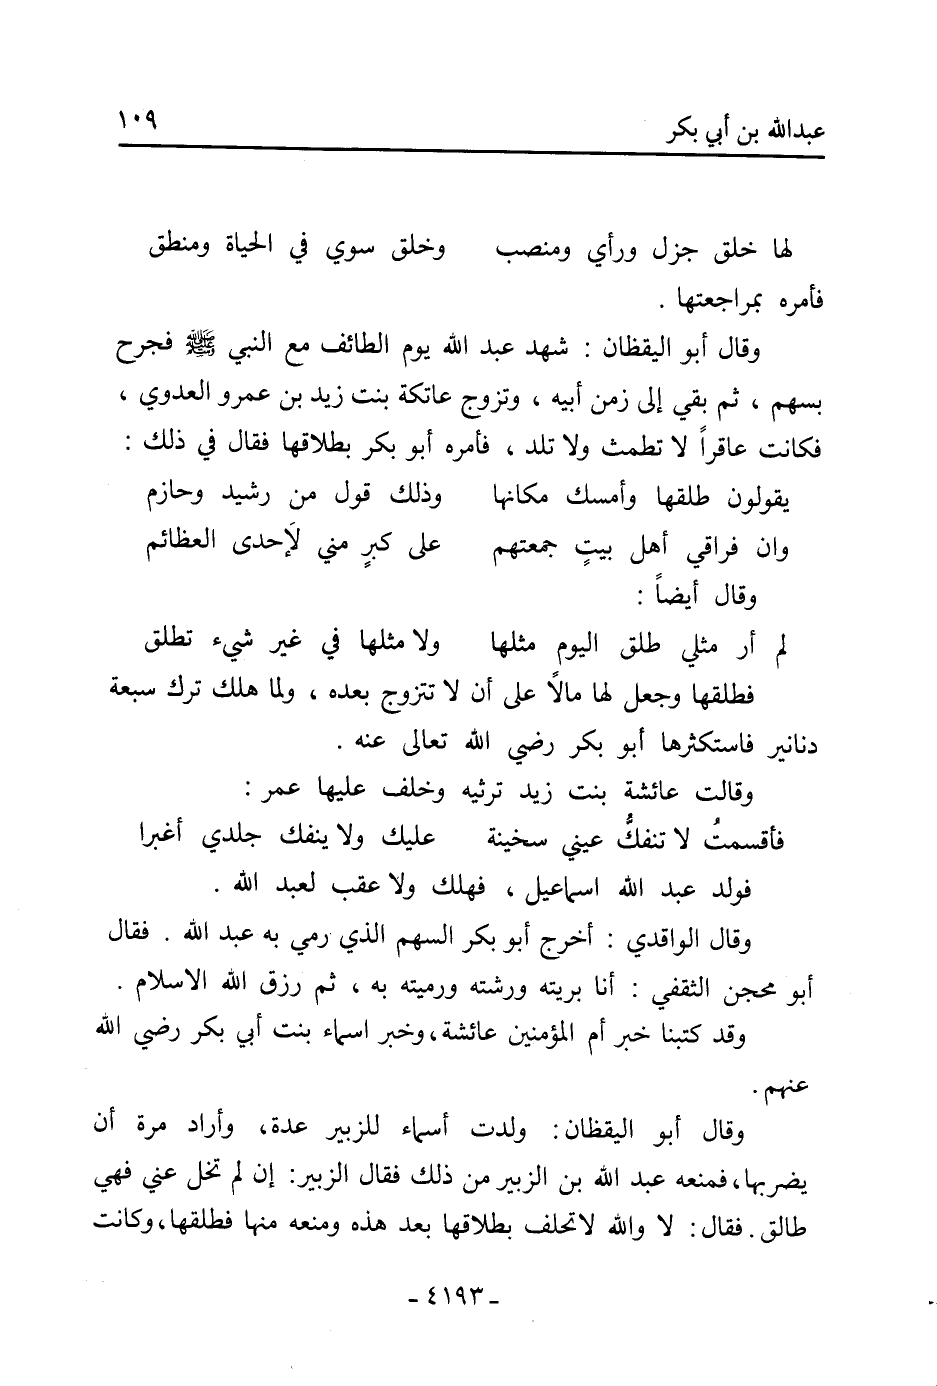 عبدالله بن أبي بكر ١٠٩
لها خلق جزل ورأي ومنصب وخلق سوي في الحياة ومنطق
فأمره بمراجعتها .
وقال أبو اليقظان : شهد عبد الله يوم الطائف مع النبي ﷺ فجرح
بسهم ، ثم بقي إلى زمن أبيه ، وتزوج عاتكة بنت زيد بن عمرو العدوي ،
فكانت عاقراً لا تطمث ولا تلد ، فأمره أبو بكر بطلاقها فقال في ذلك :
يقولون طلقها وأمسك مكانها وذلك قول من رشيد وحازم
وان فراقي أهل بيتٍ جمعتهم على كبرٍ مني لَإحدى العظائم
وقال أيضاً :
لم أر مثلي طلق اليوم مثلها ولا مثلها في غير شيء تطلق
فطلقها وجعل لها مالاً على أن لا تتزوج بعده ، ولما هلك ترك سبعة
دنانير فاستكثرها أبو بكر رضي الله تعالى عنه .
وقالت عائشة بنت زيد ترثيه وخلف عليها عمر :
فأقسمتُ لا تنفكُّ عيني سخينة عليك ولا ينفك جلدي أغبرا
فولد عبد الله اسماعيل ، فهلك ولا عقب لعبد الله .
وقال الواقدي : أخرج أبو بكر السهم الذي رمي به عبد الله . فقال
أبو محجن الثقفي : أنا بريته ورشته ورميته به ، ثم رزق الله الاسلام .
وقد كتبنا خبر أم المؤمنين عائشة، وخبر اسماء بنت أبي بكر رضي الله
عنهم .
وقال أبو اليقظان: ولدت أسماء للزبير عدة، وأراد مرة أن
يضربها، فمنعه عبد الله بن الزبير من ذلك فقال الزبير: إن لم تخل عني فهي
طالق. فقال: لا والله لا تحلف بطلاقها بعد هذه ومنعه منها فطلقها، وكانت
- ٤١٩٣ -